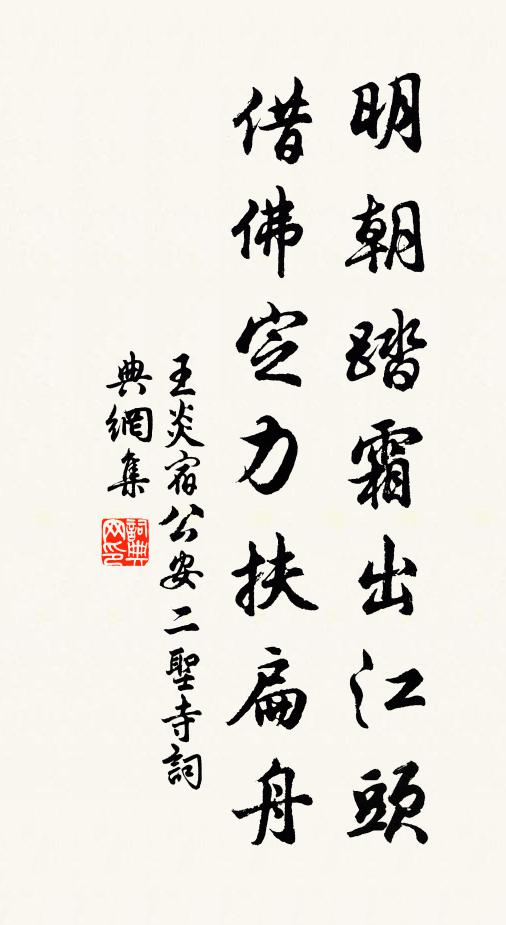 明朝踏霜出江頭
借佛定力扶扁舟
王炎宿公安二聖寺詞
典網集
詞典网印